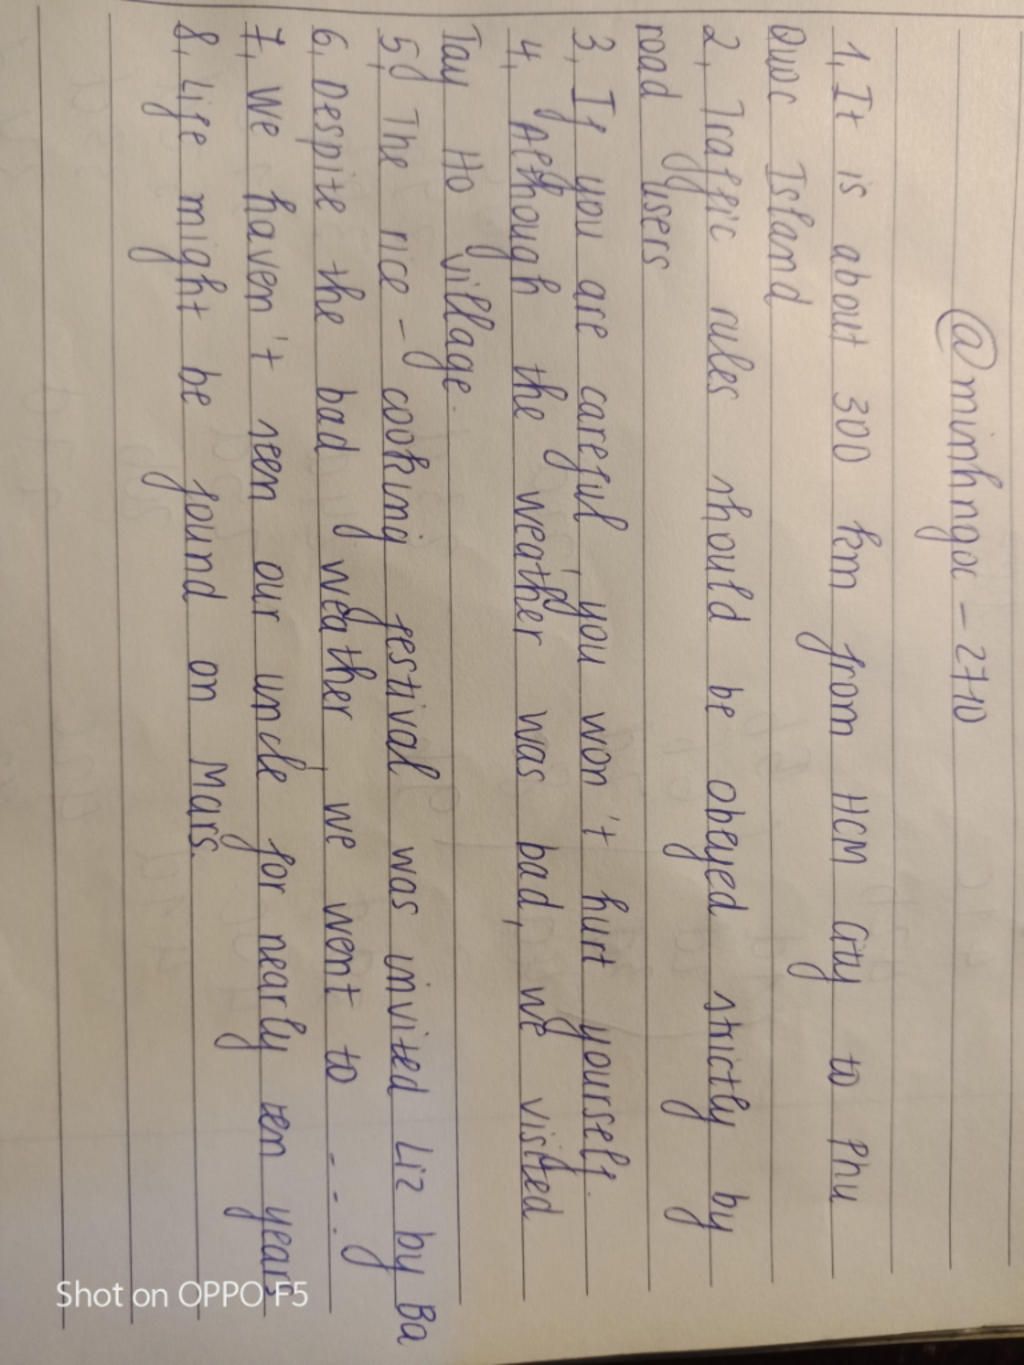 @minhngoc-2710
1, It is about 300 km from HCM City to Phu
Quoc Island
2, Traffic rules should be obeyed strictly by
road users
3, If you are careful, you won't hurt yourself.
4, Although the weather was bad, we visited
Tay Ho village.
5, The rice-cooking festival was invited Liz by Ba
6, Despite the bad weather, we went to ---.
7, We haven't seen our uncle for nearly ten years
8, Life might be found on Mars.
Shot on OPPO F5